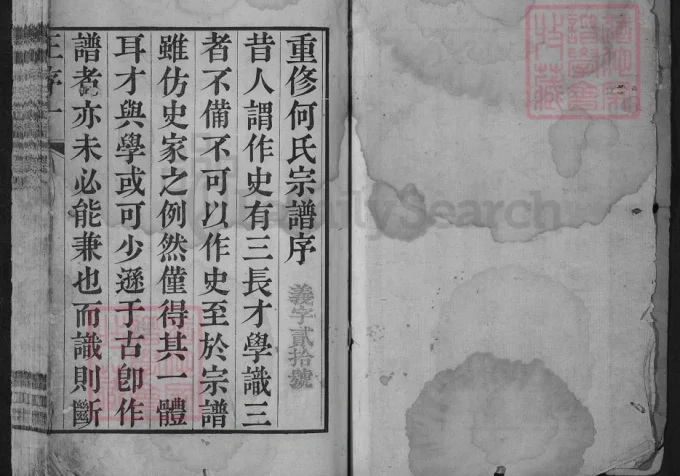 重修何氏宗譜序
義字貳拾號
昔人謂作史有三長才學識三
者不備不可以作史至於宗譜
雖仿史家之例然僅得其一體
耳才與學或可少遜于古卽作
譜者亦未必能兼也而識則斷
王序一
FamilySearch